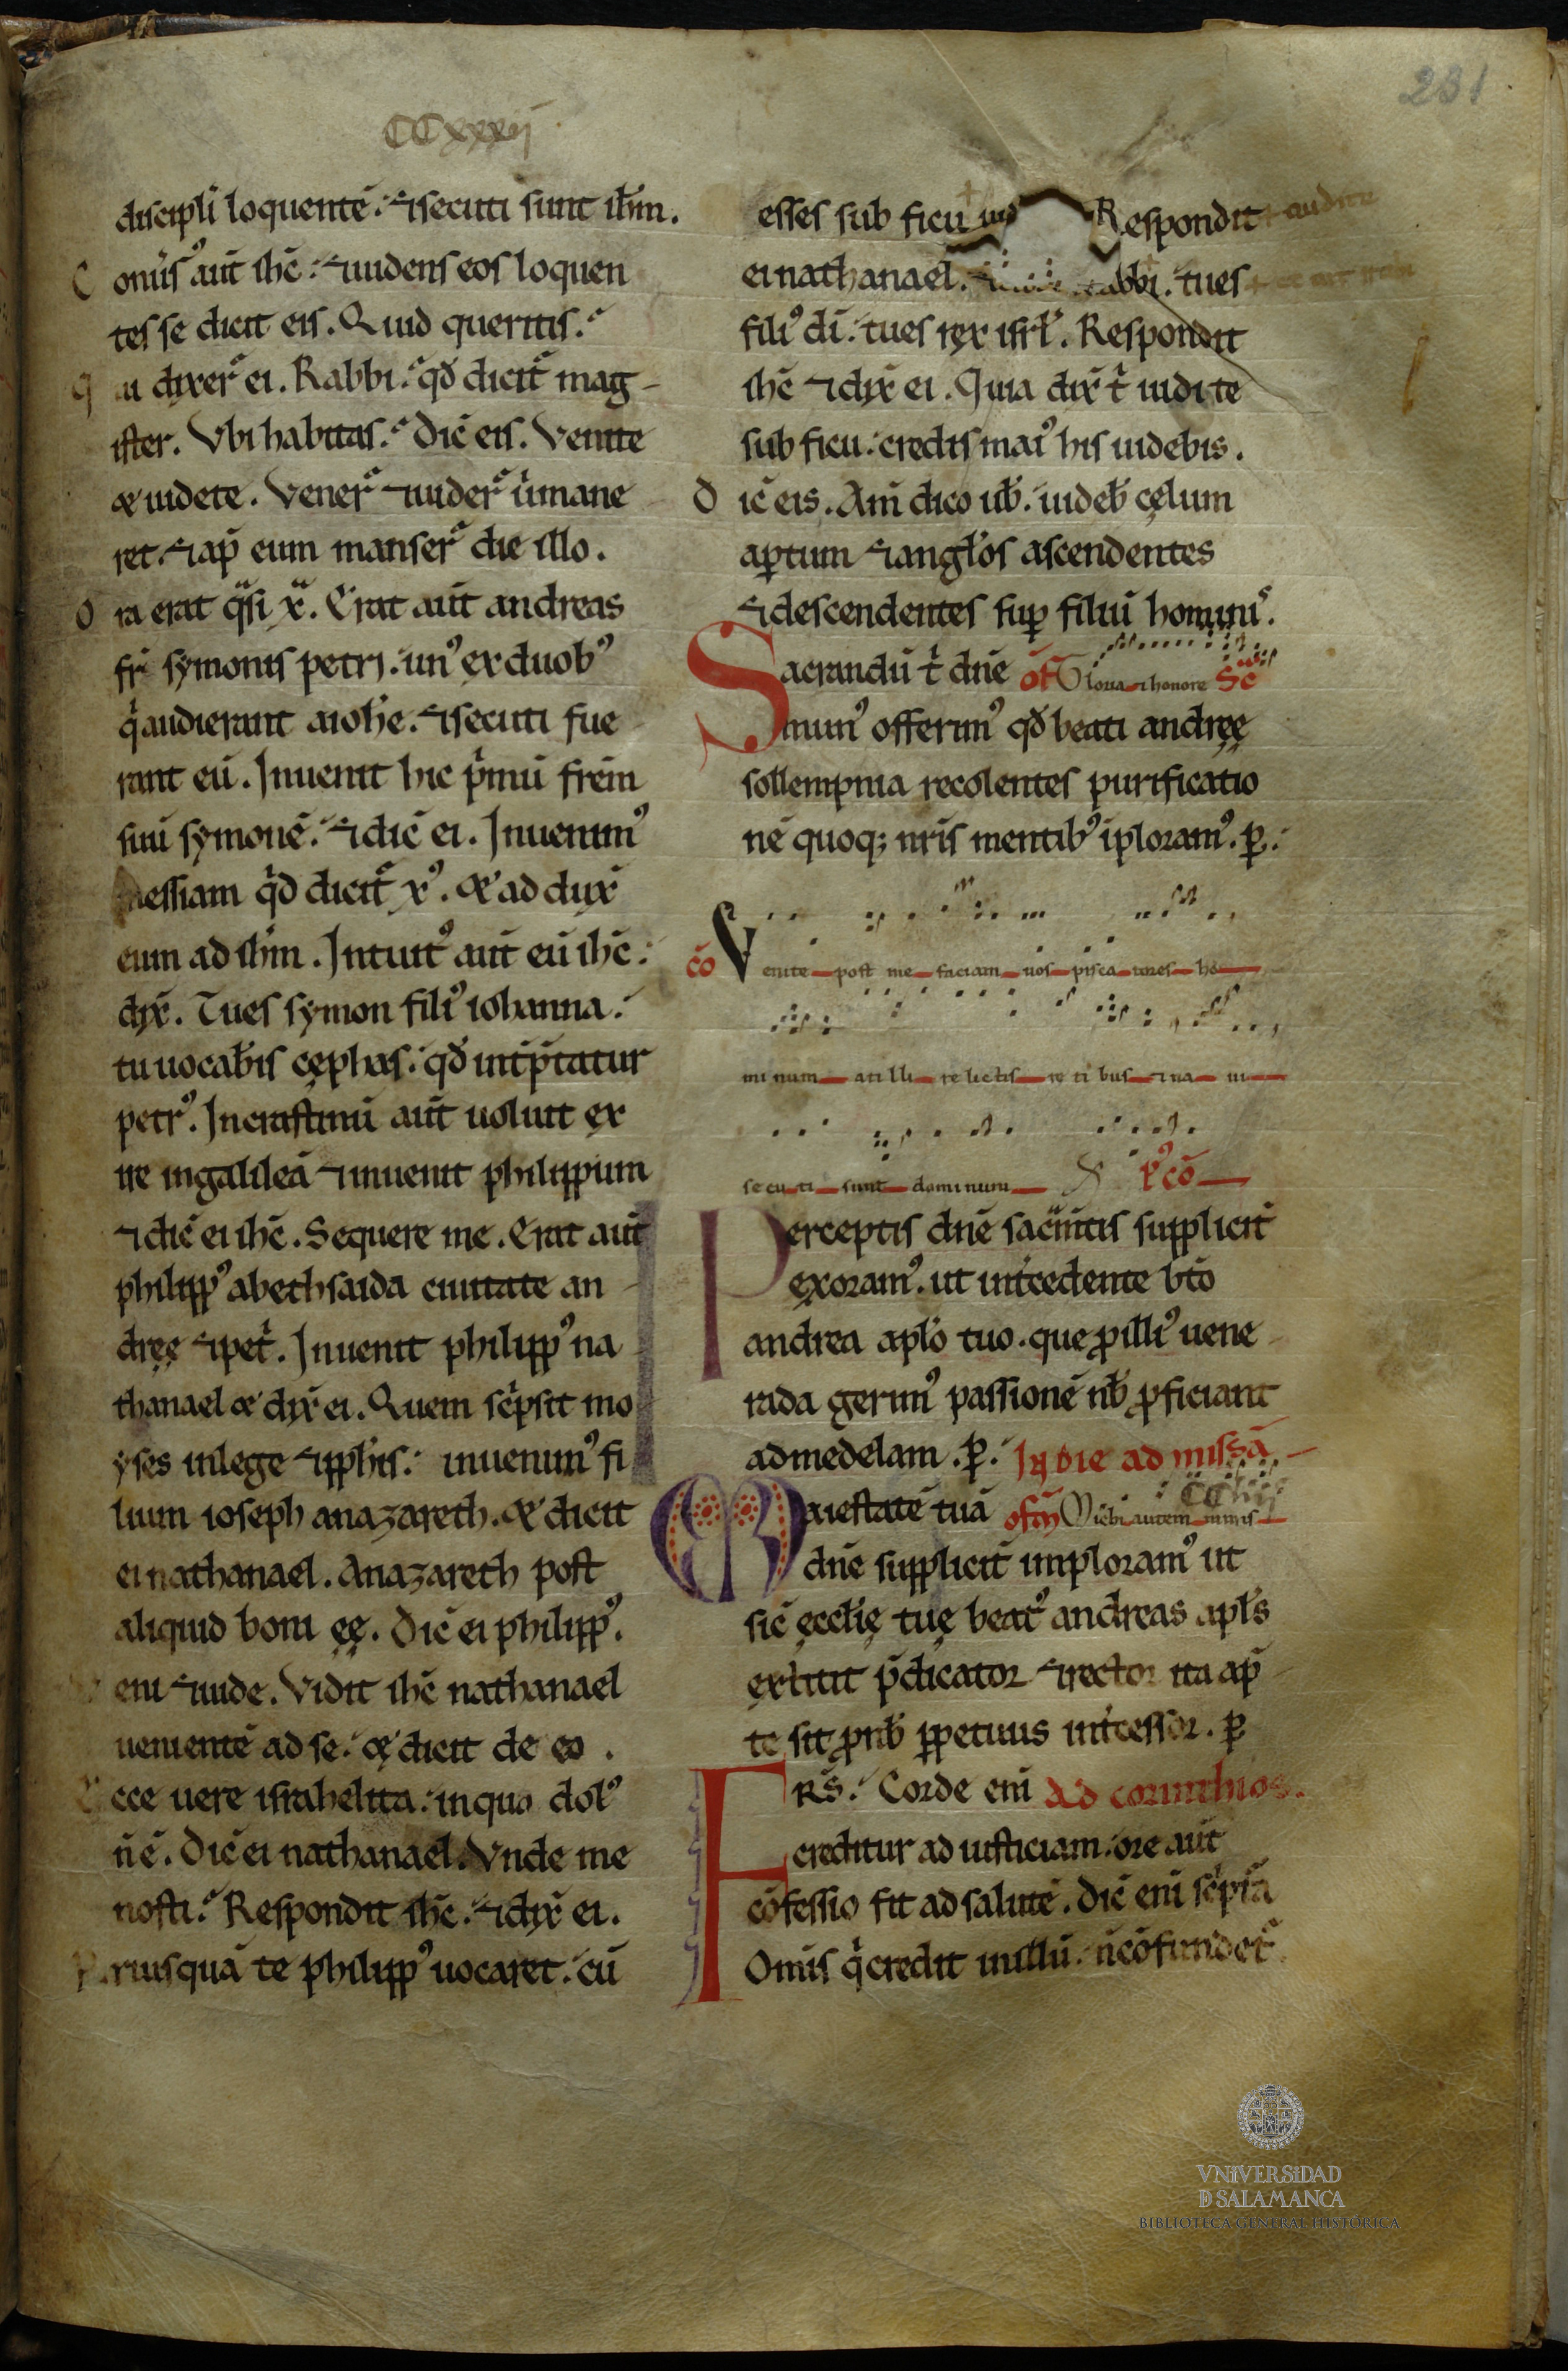 231
CCxxxij
discipli loquentē. ⁊secuti sunt ihm̄.
Conuſ᷒ aut̄ ihc̄. ⁊uidens eos loquen
tes se dicit eis. Quid queritis.
qui dixer̄ ei. Rabbi. qd̄ dicit̄ mag-
ister. Vbi habitas. Dic̄ eis. Venite
⁊ uidete. Vener̄ ⁊uider̄ ubi mane
ret. ⁊ap̄ eum manser̄ die illo.
Ora erat q̄si x̄. Erat aut̄ andreas
fr̄ symonis petri. unꝰ ex duobꝰ
q̇ audierant aiohe. ⁊secuti fue
rant eū. Inuenit hic ṗmū frēm
suū symonē. ⁊dic̄ ei. Inuenimꝰ
messiam qd̄ dicit̄ xꝰ. & ad dux̄
eum ad ihm̄. Intuitꝰ aut̄ eū ihc̄.
dix̄. Tu es symon filiꝰ iohanna.
tu uocab̄is cephas. qd̄ int̄p̄tatur
petrꝰ. In crastinū aut̄ uoluit ex
ire in galileā ⁊inuenit philippum
⁊dic̄ ei ihc̄. Sequere me. Erat aut̄
philippꝰ abethsaida ciuitate an
dreę ⁊pet̄. Inuenit philippꝰ na
thanael & dix̄ ei. Quem sc̄psit mo
yses in lege ⁊ pph̄is. inuenimꝰ fi
lium ioseph anazareth. & dicit
ei nathanael. Anazareth post
aliquid boni ęę. Dic̄ ei philippꝰ.
Veni ⁊uide. Vidit ihc̄ nathanael
uenientē ad se. & dicit de eo.
Ecce uere israhelita. in quo dolꝰ
n̄ ē. Dic̄ ei nathanael. Vnde me
nosti. Respondit ihc̄. ⁊dix̄ ei.
Priusquā te philippꝰ uocaret. cū
esses sub ficu Respondit
ei nathanael. rabbi. tu es
filiꝰ dī. tu es rex isrl̄. Respondit
ihc̄ ⁊dix̄ ei. Quia dix̄ t̄ uidi te
sub ficu. credis maiꝰ his uidebis.
Dic̄ eis. Am̄ dico uƀ. uideƀ cęlum
aptum ⁊angłos ascendentes
⁊descendentes sup filiū hominis.
Sacrandū t̄ dn̄e of Gloria ⁊ honore Sē
munꝰ offerimꝰ qd̄ beati andreę
sollempnia recolentes purificatio
nē quoq; nr̄is mentibꝰ iploramꝰ. p̄.
cō Venite post me faciam uos piscatores ho
minum at illi relictis retibus ⁊ na ui
secuti sunt dominum pꝰ cō
Perceptis dn̄e sacm̄tis supplicit̄
exoramꝰ. ut int̄cedente bt̄o
andrea apło tuo. que p illiꝰ uene
rada gerimꝰ passionē nƀ pficiant
ad medelam. p̄. In die ad missā
Maiestatē tuā ofm̄ Michi autem nimis
dn̄e supplicit̄ imploramꝰ ut
sic̄ ęcclię tuę beatꝰ andreas apłs
extitit p̄dicator ⁊rector ita ap̄
te sit p nƀ ppetuus int̄cessor. p̄
FRs̄. Corde eni Ad corinthios.
creditur ad iusticiam. ore aut̄
cōfessio fit ad salutē. Dic̄ eni sc̄ptā
Omis q̇ credit in illū. n̄ cōfundet̄
VNIVERSIDAD
D SALAMANCA
BIBLIOTECA GENERAL HISTÓRICA